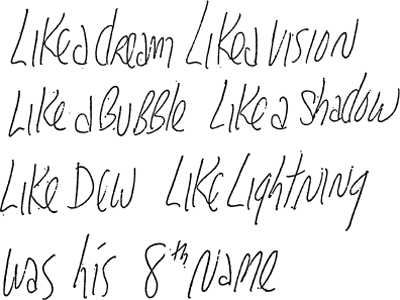 Like a dream Like a vision
Like a Bubble Like a shadow
Like Dew Like Lightning
was his 8th Name